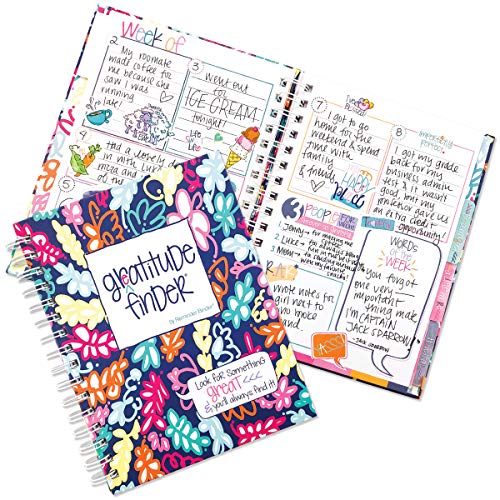 Week of
2
My roomate
made coffee for
me because she
saw I was
running
late!
3
went out
for
ICE CREAM
tonight!
Life
is
4
Had a lovely d
in with Luk
5
7
I got to go
home for the
weekend & spend
time with
family
& friends
HAPPY
place
8
I got my grade
back for my
business admin
test & it wasn't
good, but my
professor gave us
an extra credit
opportunity!
3
people
1
2 Luke
3 Mom
WORDS
OF THE
WEEK
You forgot
one very
important
thing mate.
I'm CAPTAIN
JACK SPARROW.
- Jack Sparrow
wrote notes for
girl next to
who broke
hand
gratitude
finder®
by Reminder Binder®
Look for something
great <<<
& you'll always find it!